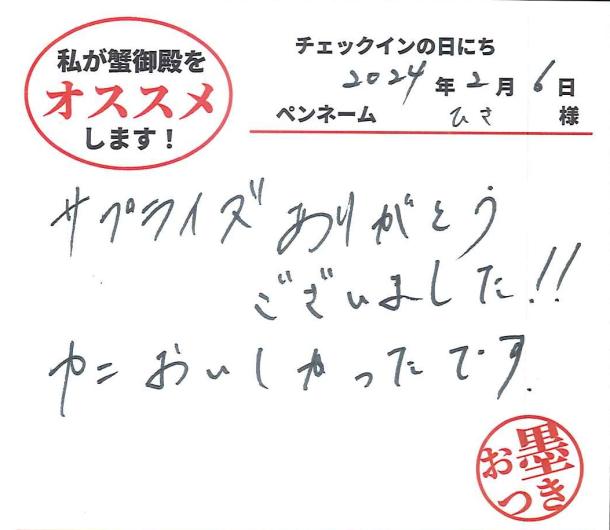 私が蟹御殿を
オススメ
します！
チェックインの日にち
2024年2月6日
ペンネーム ひさ 様
サプライズ ありがとう
ございました!!
カニ おいしかったです.
お墨つき